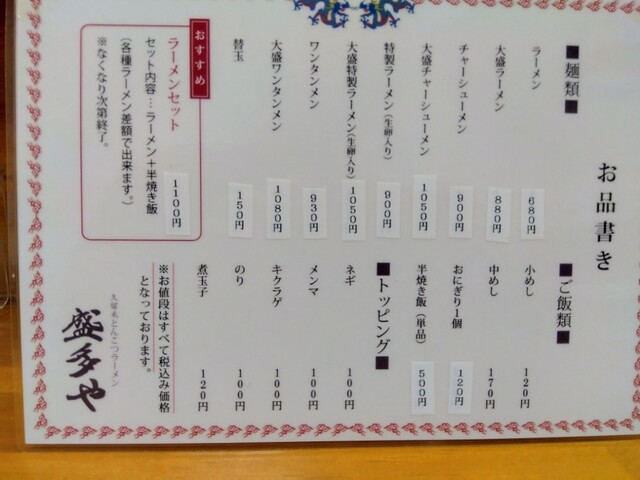 お品書き
■麺類■
ラーメン 680円
大盛ラーメン 880円
チャーシューメン 900円
大盛チャーシューメン 1050円
特製ラーメン(生卵入り) 900円
大盛特製ラーメン(生卵入り) 1050円
ワンタンメン 930円
大盛ワンタンメン 1080円
替玉 150円
おすすめ
ラーメンセット 1100円
セット内容…ラーメン+半焼き飯
(各種ラーメン差額で出来ます。)
※なくなり次第終了。
■ご飯類■
小めし 120円
中めし 170円
おにぎり1個 120円
半焼き飯(単品) 500円
■トッピング■
ネギ 100円
メンマ 100円
キクラゲ 100円
のり 100円
煮玉子 120円
※お値段はすべて税込み価格
となっております。
久留米とんこつラーメン
盛多や